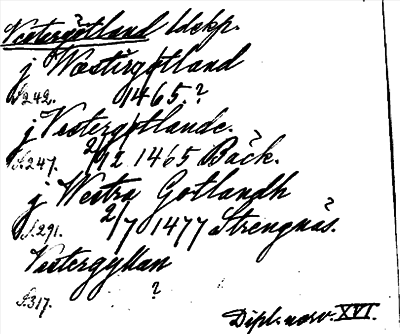 Västergötland ldskp.
j Wæstirgøtland
S.242. 1465.?
j Vestergøtlande.
S.247. 2/12 1465 Bäck.
j Westra Gotlandh
S.291. 2/7 1477 Strengnäs.
Vestergyllan
S.317. ?
Dipl. norv. XVI.